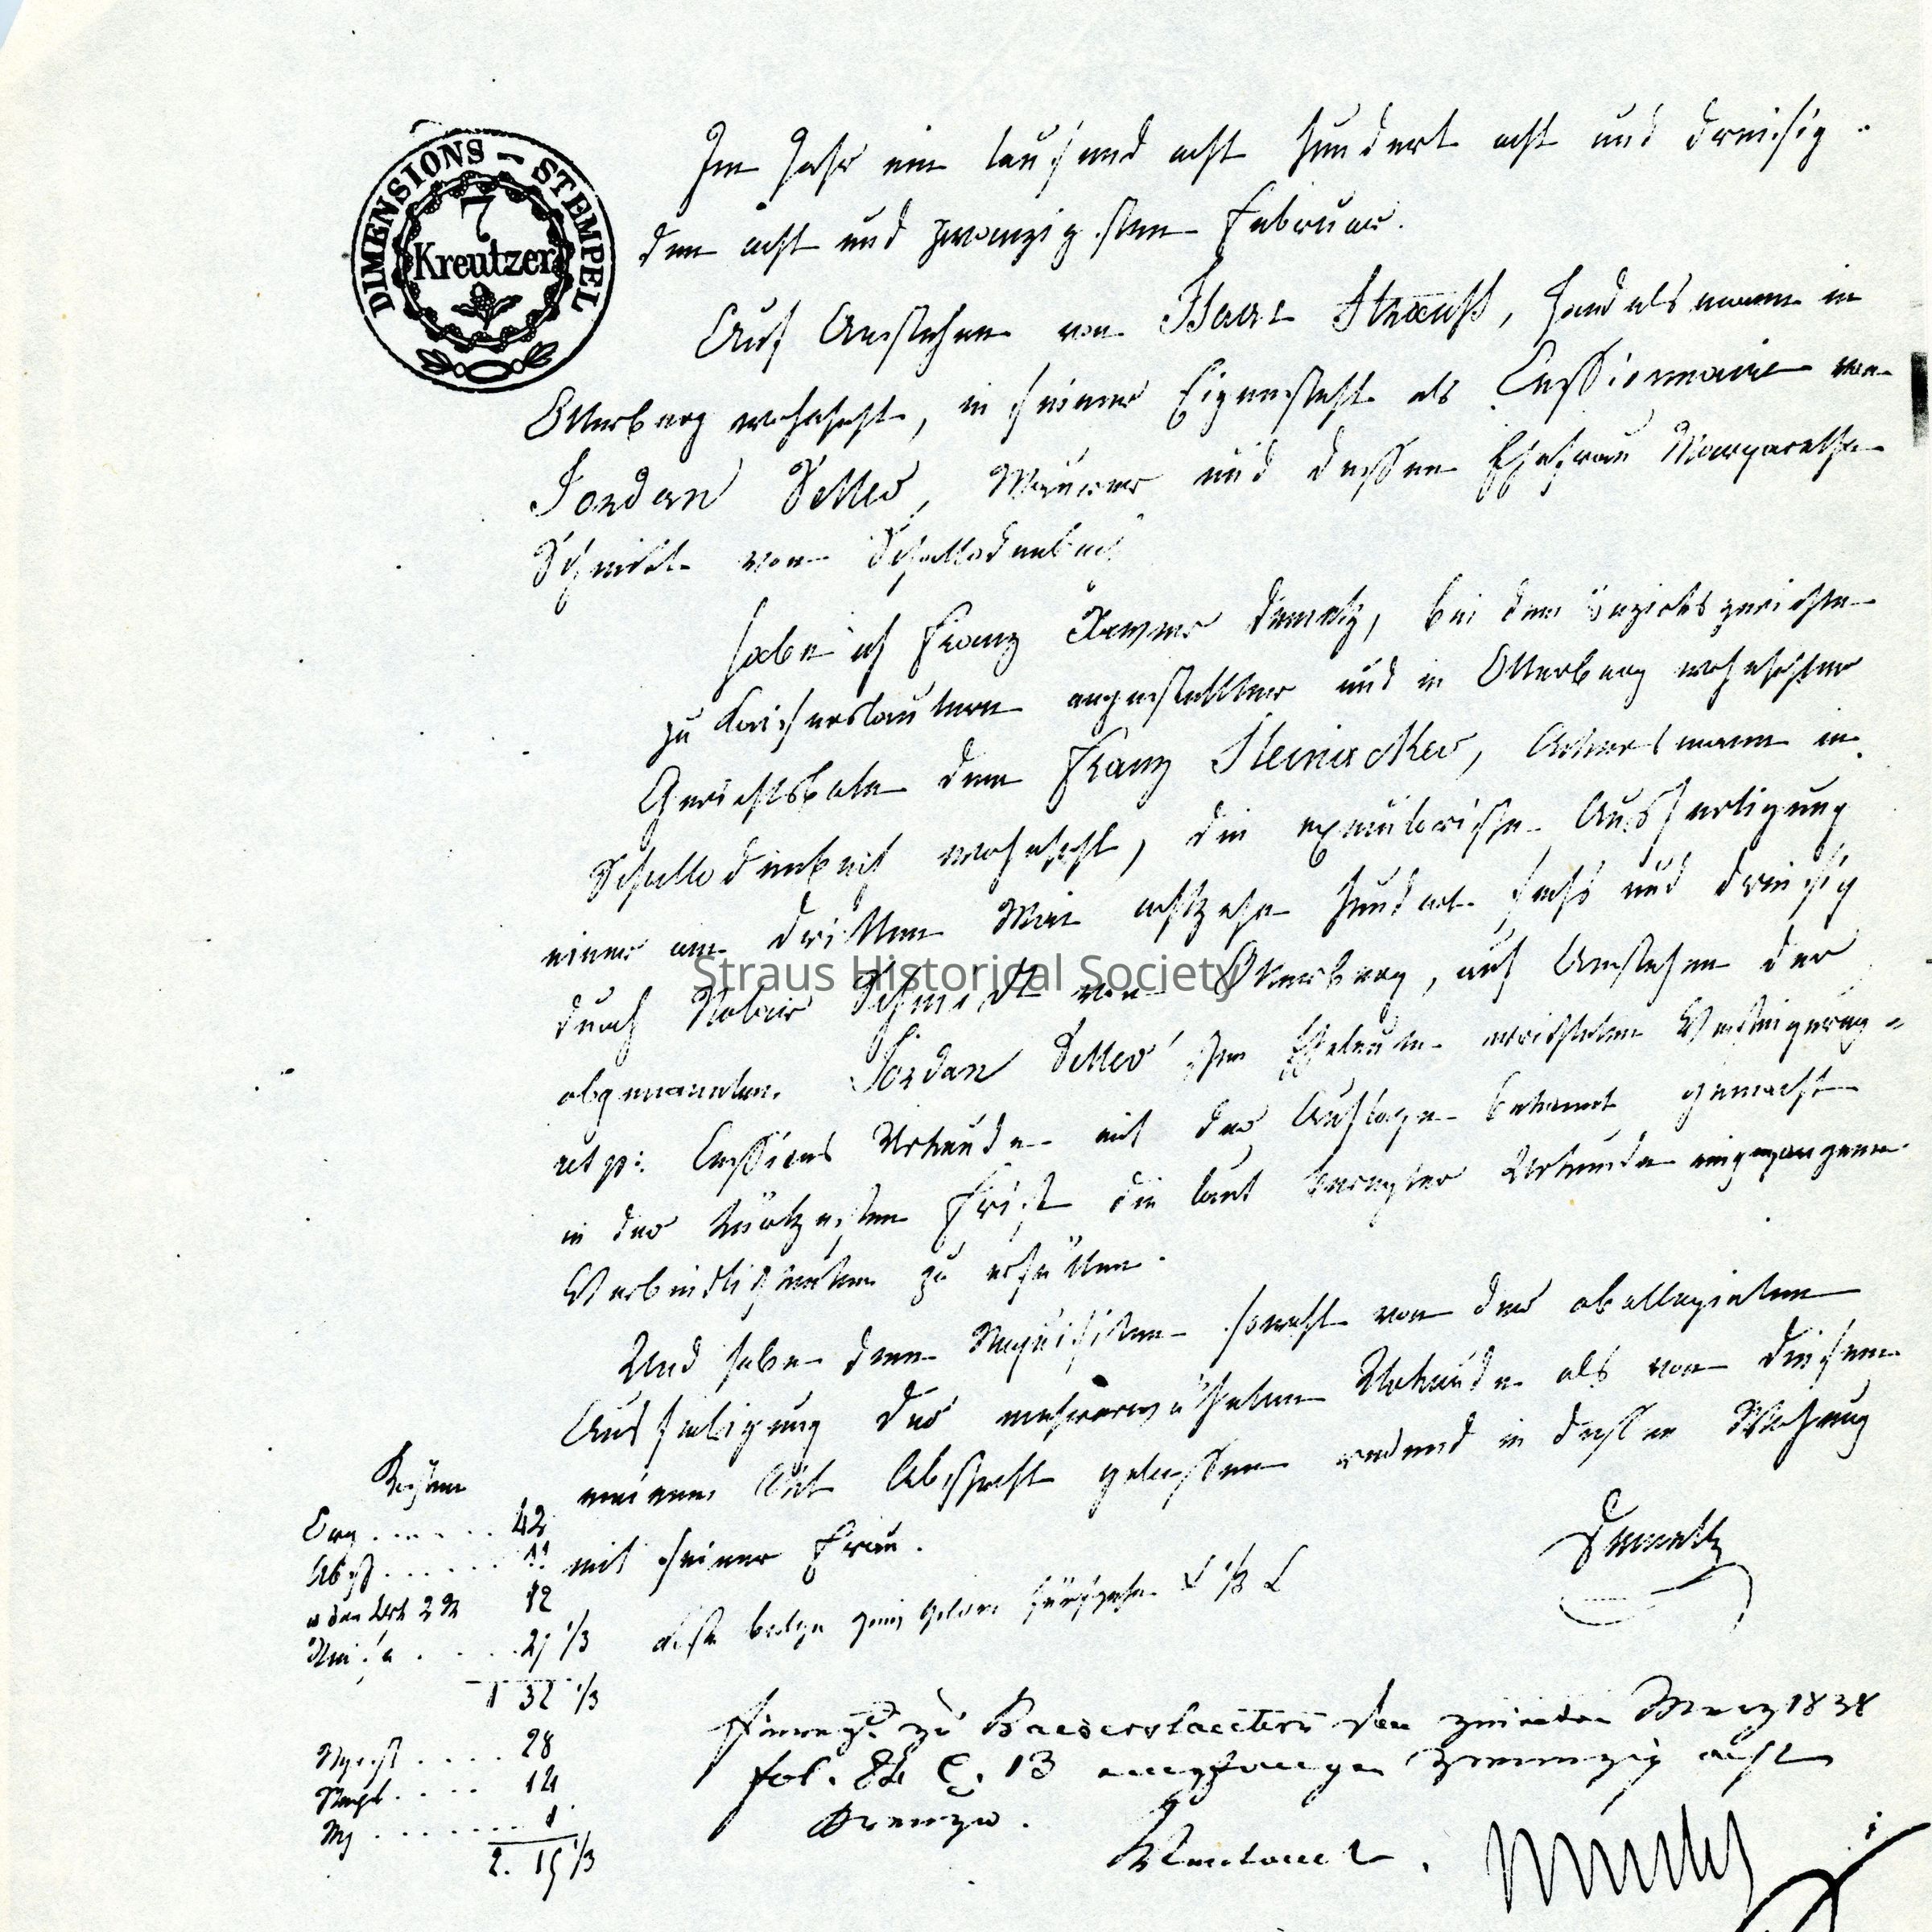 DIMENSIONS - STEMPEL
7
Kreutzer
Im Jahr ein tausend acht hundert acht und dreisig
den acht und zwanzigsten Februar.
Auf Anstehen von Isaac Strauss, Handelsmann in
Otterberg wohnhaft, in seiner Eigenschaft als Cessionnaire von
Jordan Setter, Maurer und dessen Ehefrau Margaretha
Schmitt von Schallodenbach
habe ich Franz Xaver Demetz, bei dem Bezirksgerichte
zu Kaiserslautern angestellter und in Otterberg wohnhafter
Gerichtsbote dem Franz Steinacker, Ackersmann in
Schallodenbach wohnhaft, die exekutorische Ausfertigung
einer am dritten Mai achtzehn hundert sechs und dreisig
durch Notair Schmidt von Otterberg, auf Anstehen der
obgenannten Jordan Setter'schen Eheleute errichteten Versteigerung-
Cessions Urkunde mit der Auflage bekannt gemacht
in der kürtzesten Frist die laut besagter Urkunde eingegangenen
Verbindlichkeiten zu erfüllen.
Und habe dem Requisiten sowohl von der oballegirten
Ausfertigung der mehrerwähnten Urkunde als von diesem
meinem Akt Abschrift gelassen redend in dessen Wohnung
mit seiner Frau.
Demetz
Kosten
Org . . . . . . 42
Absch . . . . . . 11
12
. . . . 27 1/3
1 32 1/3
Regist . . . . 28
. . . . 14
. . . . . . 1
2. 15 1/3
zu Kaiserslautern den zweiten Merz 1838
fol. 82 C. 13 empfangen zwanzig acht
Kreuzer.
Rentamt.
Straus Historical Society